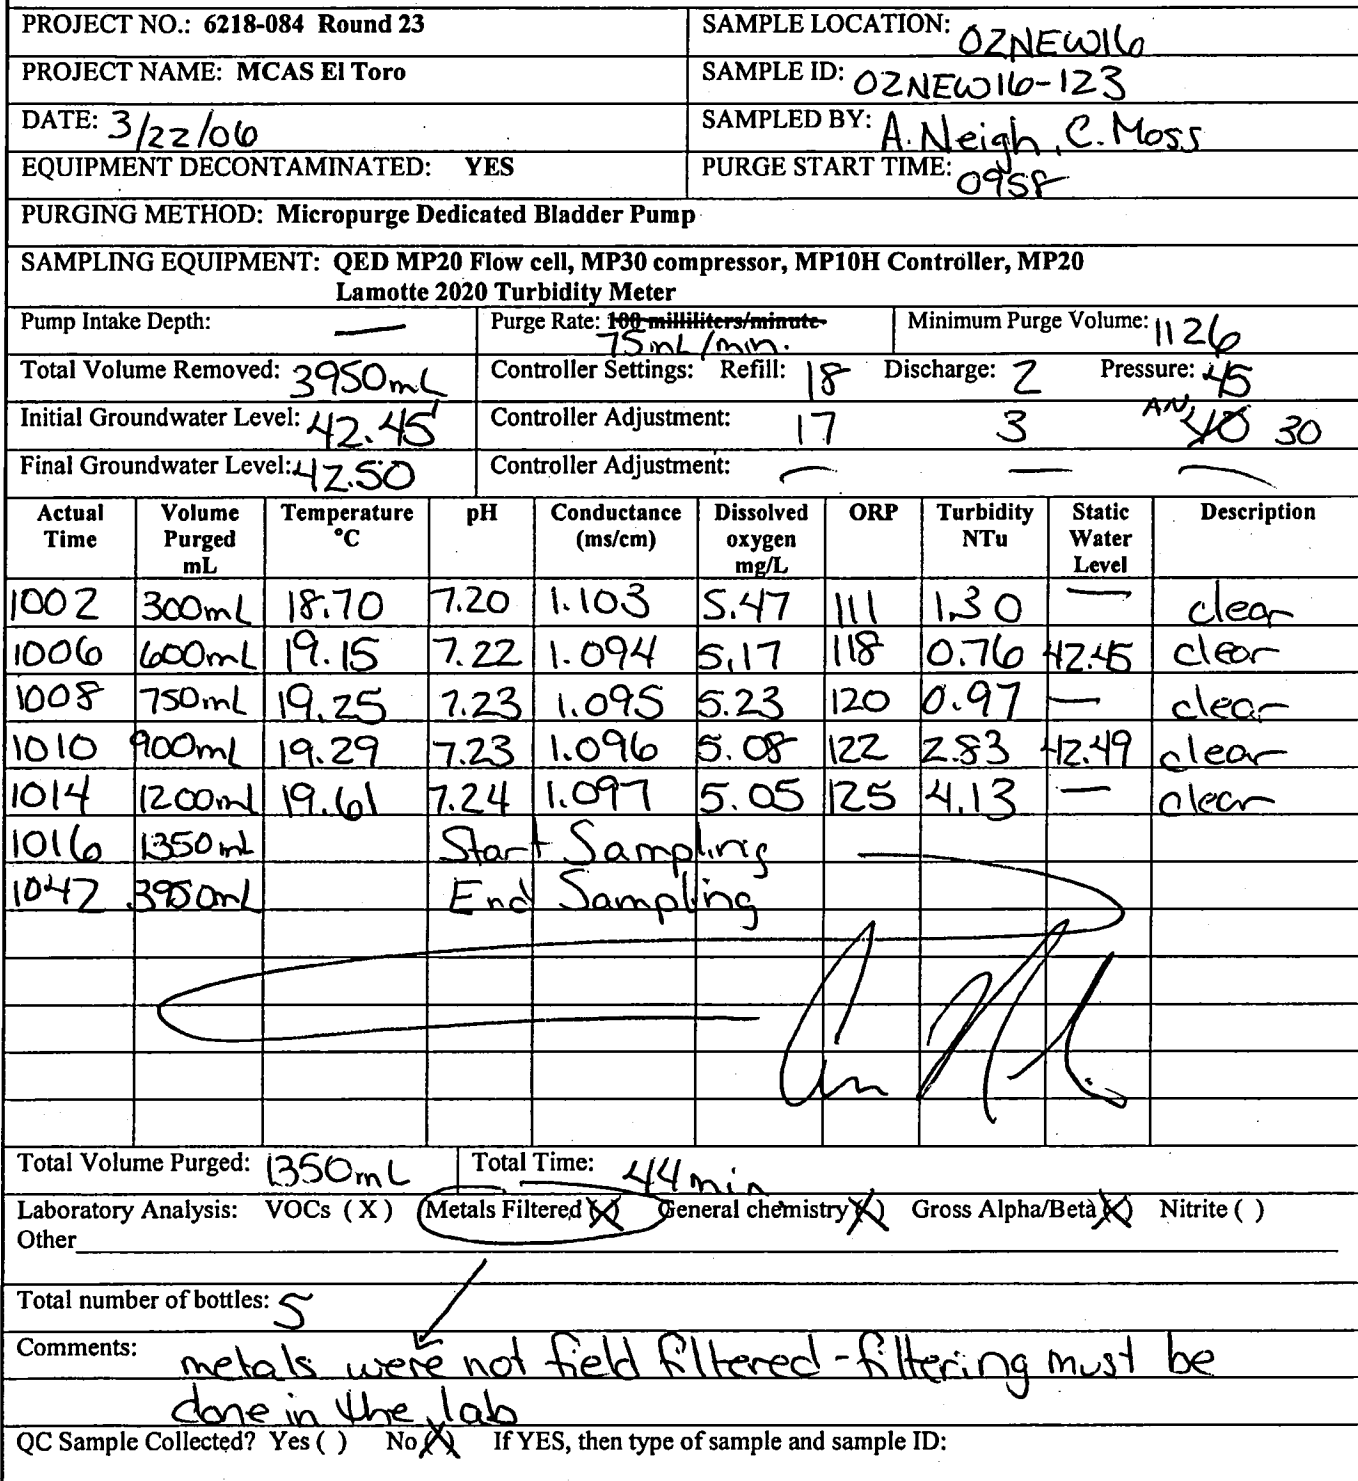 PROJECT NO.: 6218-084 Round 23 SAMPLE LOCATION: 02NEW16
PROJECT NAME: MCAS El Toro SAMPLE ID: 02NEW16-123
DATE: 3/22/06 SAMPLED BY: A. Neigh, C. Moss
EQUIPMENT DECONTAMINATED: YES PURGE START TIME: 0958
PURGING METHOD: Micropurge Dedicated Bladder Pump
SAMPLING EQUIPMENT: QED MP20 Flow cell, MP30 compressor, MP10H Controller, MP20
Lamotte 2020 Turbidity Meter
Pump Intake Depth: — Purge Rate: 100 milliliters/minute Minimum Purge Volume: 1126
75mL/min.
Total Volume Removed: 3950mL Controller Settings: Refill: 18 Discharge: 2 Pressure: 45
Initial Groundwater Level: 42.45' Controller Adjustment: 17 3 AN 40 30
Final Groundwater Level: 42.50 Controller Adjustment: — — —
Actual Volume Temperature pH Conductance Dissolved ORP Turbidity Static Description
Time Purged °C (ms/cm) oxygen NTu Water
mL mg/L Level
1002 300mL 18.70 7.20 1.103 5.47 111 1.30 — clear
1006 600mL 19.15 7.22 1.094 5.17 118 0.76 42.45 clear
1008 750mL 19.25 7.23 1.095 5.23 120 0.97 — clear
1010 900mL 19.29 7.23 1.096 5.08 122 2.83 42.49 clear
1014 1200mL 19.61 7.24 1.097 5.05 125 4.13 — clear
1016 1350mL Start Sampling
1042 3950mL End Sampling
Total Volume Purged: 1350mL Total Time: 44min
Laboratory Analysis: VOCs (X) Metals Filtered (X) General chemistry (X) Gross Alpha/Beta (X) Nitrite ( )
Other
Total number of bottles: 5
Comments: metals were not field filtered - filtering must be
done in the lab
QC Sample Collected? Yes ( ) No (X) If YES, then type of sample and sample ID: